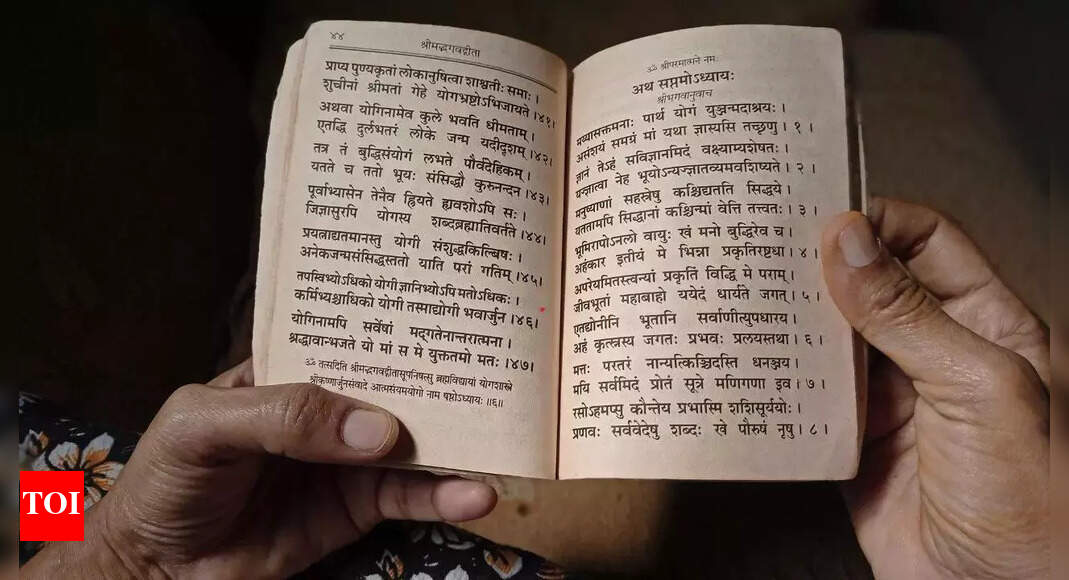 ४४
श्रीमद्भगवद्गीता
प्राप्य पुण्यकृतां लोकानुषित्वा शाश्वतीः समाः ।
शुचीनां श्रीमतां गेहे योगभ्रष्टोऽभिजायते ।४१।
अथवा योगिनामेव कुले भवति धीमताम् ।
एतद्धि दुर्लभतरं लोके जन्म यदीदृशम् ।४२।
तत्र तं बुद्धिसंयोगं लभते पौर्वदेहिकम् ।
यतते च ततो भूयः संसिद्धौ कुरुनन्दन ।४३।
पूर्वाभ्यासेन तेनैव ह्रियते ह्यवशोऽपि सः ।
जिज्ञासुरपि योगस्य शब्दब्रह्मातिवर्तते ।४४।
प्रयत्नाद्यतमानस्तु योगी संशुद्धकिल्बिषः ।
अनेकजन्मसंसिद्धस्ततो याति परां गतिम् ।४५।
तपस्विभ्योऽधिको योगी ज्ञानिभ्योऽपि मतोऽधिकः ।
कर्मिभ्यश्चाधिको योगी तस्माद्योगी भवार्जुन ।४६।
योगिनामपि सर्वेषां मद्गतेनान्तरात्मना ।
श्रद्धावान्भजते यो मां स मे युक्ततमो मतः ।४७।
ॐ तत्सदिति श्रीमद्भगवद्गीतासूपनिषत्सु ब्रह्मविद्यायां योगशास्त्रे
श्रीकृष्णार्जुनसंवादे आत्मसंयमयोगो नाम षष्ठोऽध्यायः ॥६॥
ॐ श्रीपरमात्मने नमः
अथ सप्तमोऽध्यायः
श्रीभगवानुवाच
मय्यासक्तमनाः पार्थ योगं युञ्जन्मदाश्रयः ।
असंशयं समग्रं मां यथा ज्ञास्यसि तच्छृणु । १ ।
ज्ञानं तेऽहं सविज्ञानमिदं वक्ष्याम्यशेषतः ।
यज्ज्ञात्वा नेह भूयोऽन्यज्ज्ञातव्यमवशिष्यते । २ ।
मनुष्याणां सहस्रेषु कश्चिद्यतति सिद्धये ।
यततामपि सिद्धानां कश्चिन्मां वेत्ति तत्त्वतः । ३ ।
भूमिरापोऽनलो वायुः खं मनो बुद्धिरेव च ।
अहंकार इतीयं मे भिन्ना प्रकृतिरष्टधा । ४ ।
अपरेयमितस्त्वन्यां प्रकृतिं विद्धि मे पराम् ।
जीवभूतां महाबाहो ययेदं धार्यते जगत् । ५ ।
एतद्योनीनि भूतानि सर्वाणीत्युपधारय ।
अहं कृत्स्नस्य जगतः प्रभवः प्रलयस्तथा । ६ ।
मत्तः परतरं नान्यत्किञ्चिदस्ति धनञ्जय ।
मयि सर्वमिदं प्रोतं सूत्रे मणिगणा इव । ७ ।
रसोऽहमप्सु कौन्तेय प्रभास्मि शशिसूर्ययोः ।
प्रणवः सर्ववेदेषु शब्दः खे पौरुषं नृषु । ८ ।
TOI